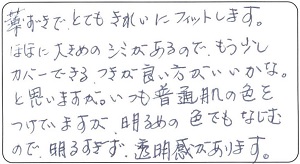 薄づきで、とてもきれいにフィットします。
ほほに大きめのシミがあるので、もう少し
カバーできる、つきが良い方がいいかな。
と思いますが。いつも普通肌の色を
つけていますが、明るめの色でもなじむ
ので、明るすぎず、透明感があります。